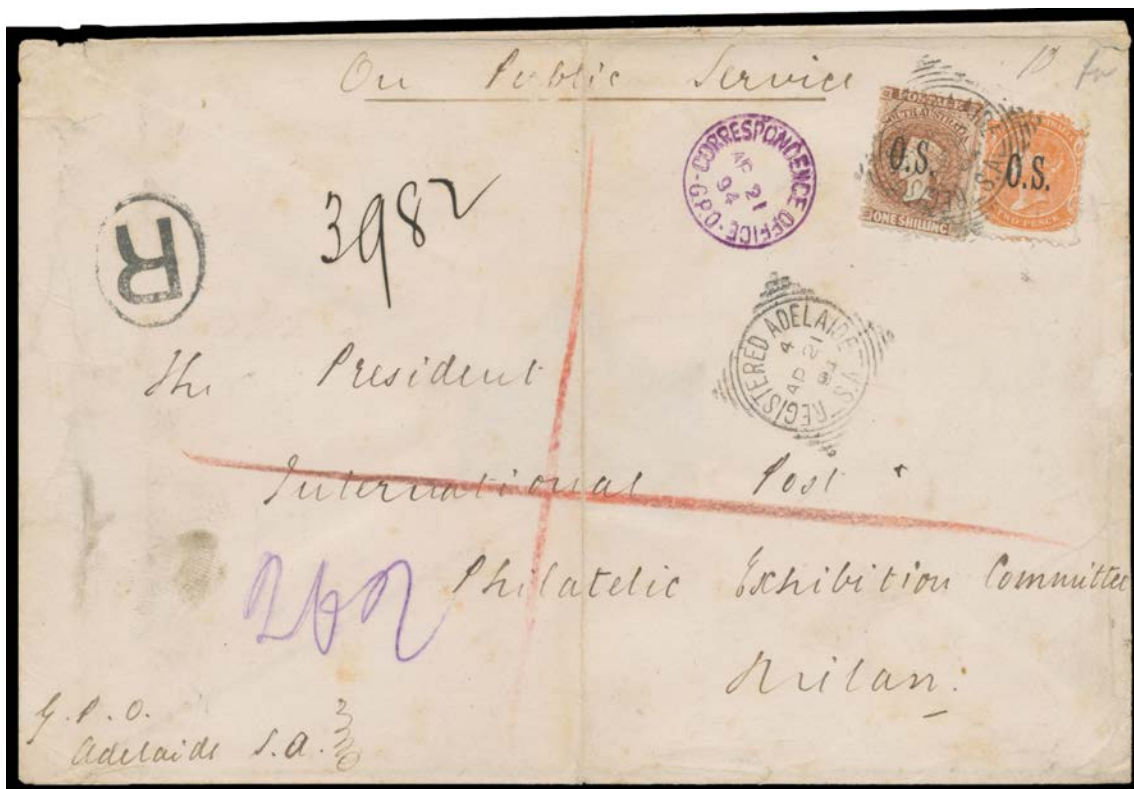 On Public Service
10
CORRESPONDENCE OFFICE · G.P.O ·
AP 21
94
O.S.
ONE SHILLING
SOUTH AUSTRALIA
O.S.
TWO PENCE
R
3982
REGISTERED ADELAIDE S.A.
4
AP 21
94
The President
International Post
Philatelic Exhibition Committee
Milan.
G. P. O.
Adelaide S.A.